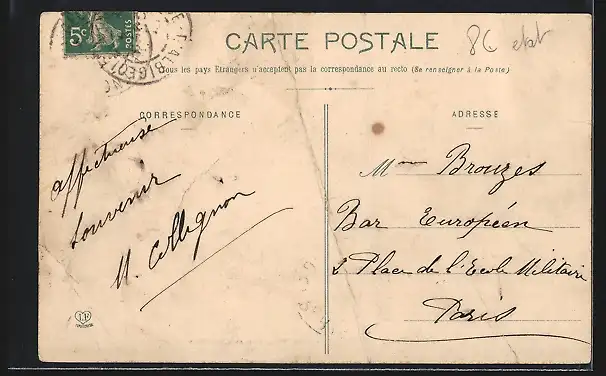 5c
POSTES
CARTE POSTALE
Tous les pays Etrangers n'acceptent pas la correspondance au recto (Se renseigner à la Poste)
CORRESPONDANCE
ADRESSE
affectueuse
souvenir
M. Collignon
Mme Brouzes
Bar Européen
2 Place de l'Ecole Militaire
Paris